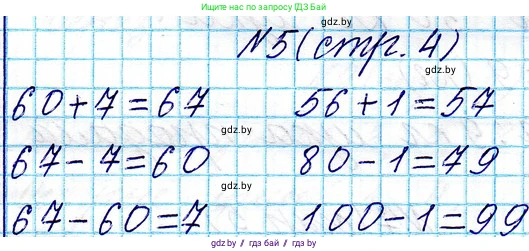 Пишите нам по запросу помогаем с ДЗ
gdz.by
N5 (стр. 4)
gdz.by
60+7=67 56+1=57
gdz.by
67-7=60 80-1=79
gdz.by
67-60=7 100-1=99
gdz.by / гдз.бай / gdz.by